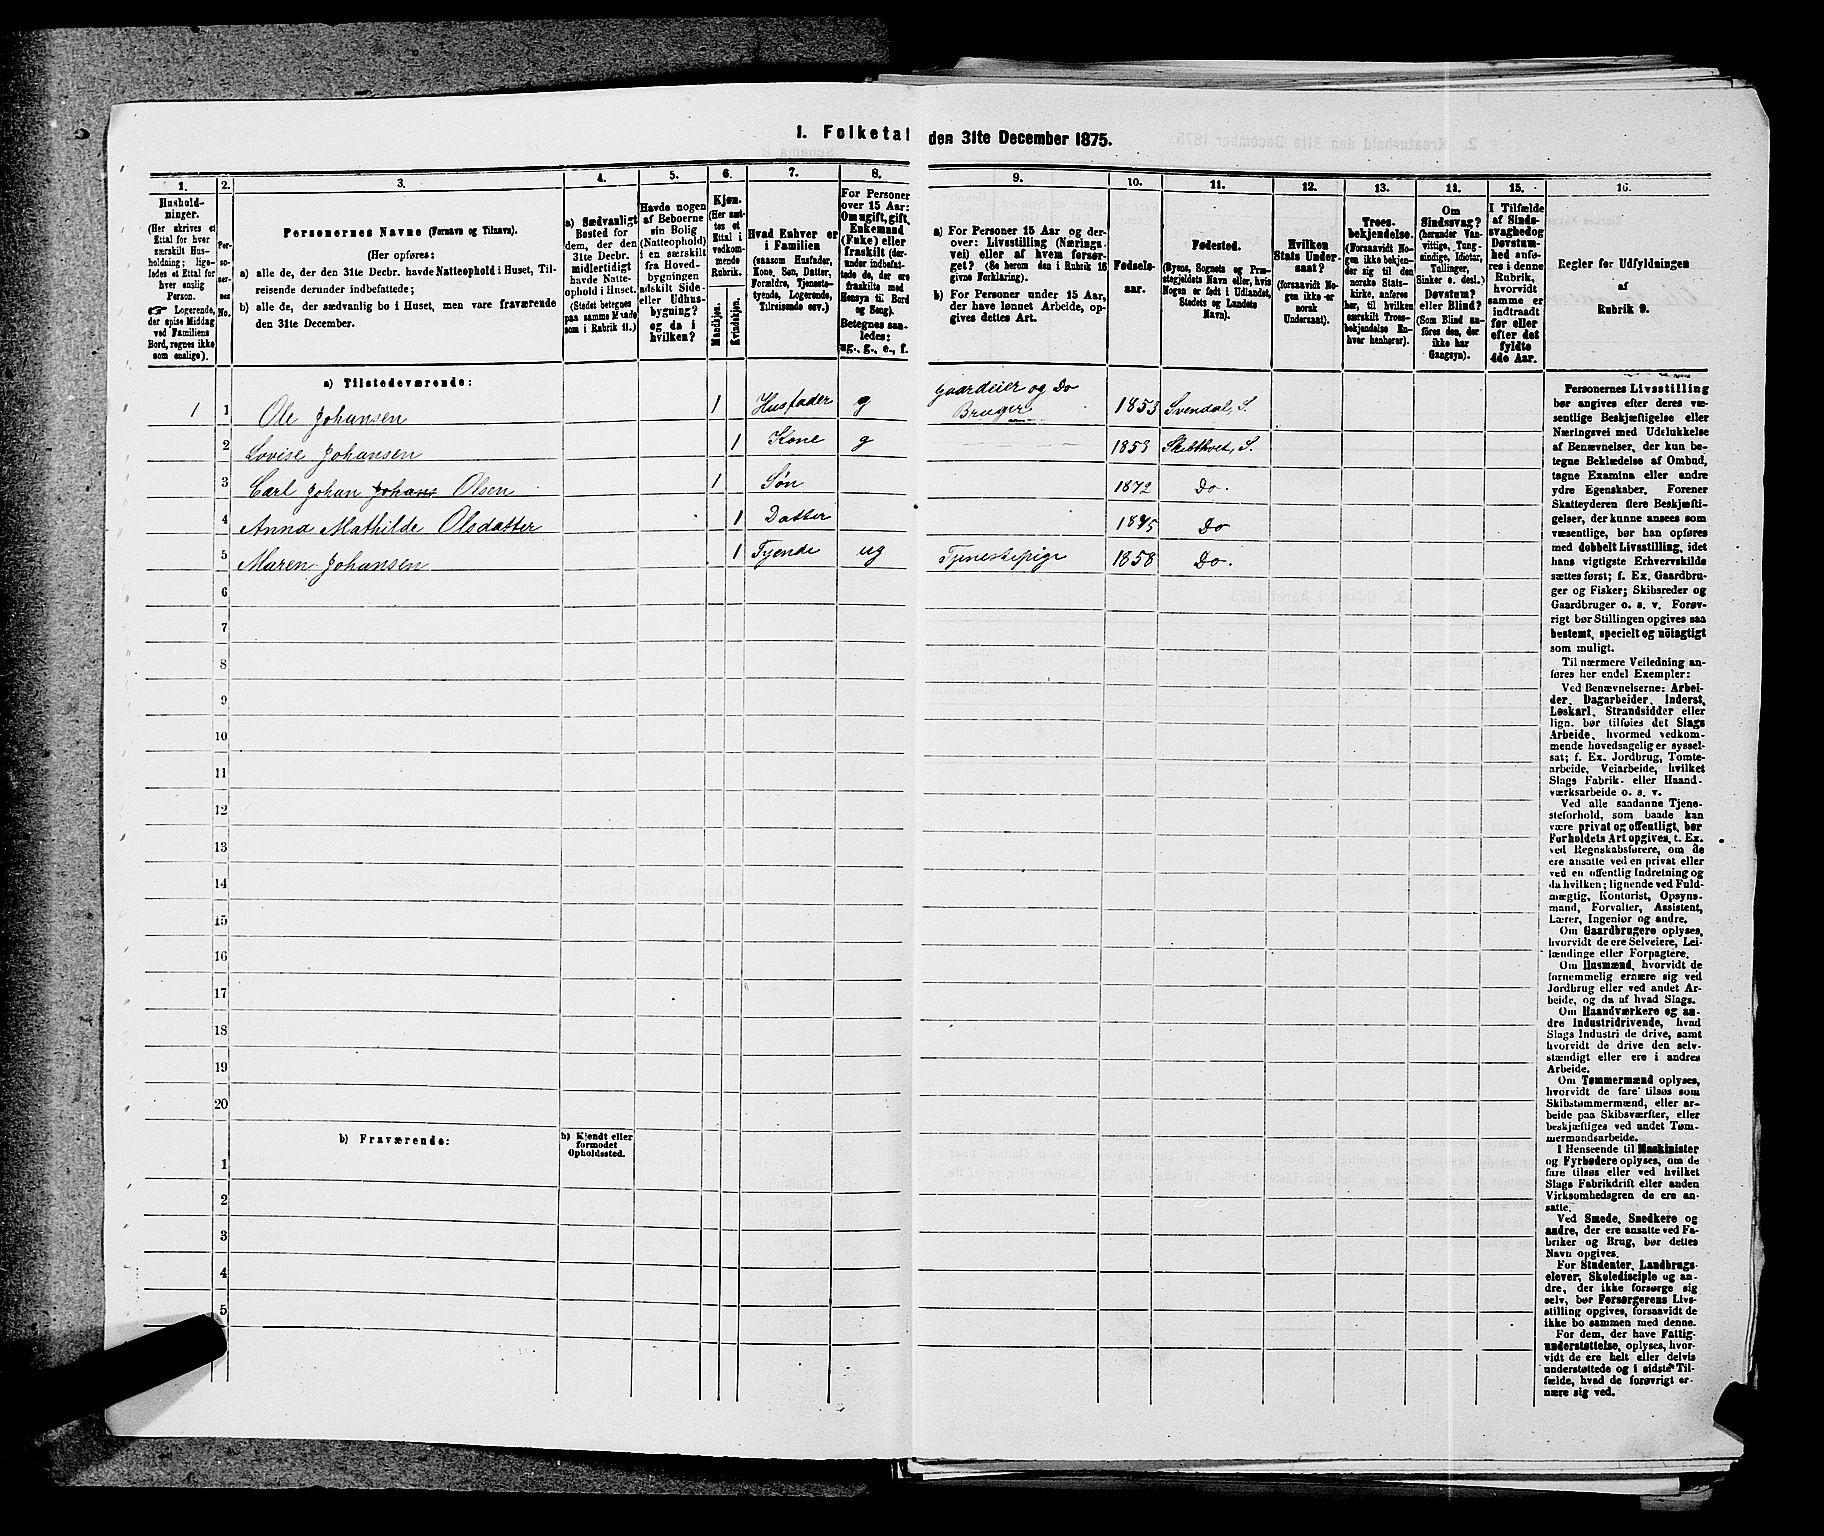 1. Folketal den 31te December 1875.
1.
Hushold-
ninger.
(Her skrives et
Ettal for hver
særskilt Hus-
holdning; lige-
ledes et Ettal for
hver enslig
Person.
Logerende,
der spise Middag
ved Familiens
Bord, regnes ikke
som enslige).
2.
Per-
so-
ner-
nes
No.
3.
Personernes Navne (Fornavn og Tilnavn).
(Her opføres:
a) alle de, der den 31te Decbr. havde Natteophold i Huset, Til-
reisende derunder indbefattede;
b) alle de, der sædvanlig bo i Huset, men vare fraværende
den 31te December.
4.
a) Sædvanligt
Bosted for
dem, der den
31te Decbr.
midlertidigt
havde Natte-
ophold i Huset.
(Stedet betegnes
paa samme Maade
som i Rubrik 11.)
5.
Havde nogen
af Beboerne
sin Bolig
(Natteophold)
i en særskilt
fra Hoved-
bygningen
adskilt Side-
eller Udhus-
bygning?
og da i
hvilken?
6.
Kjøn.
(Her sæt-
tes et
Ettal i
vedkom-
mende
Rubrik.
Mandkjøn.
Kvindekjøn.
7.
Hvad Enhver er
i Familien
(saasom Husfader,
Kone, Søn, Datter,
Forældre, Tjeneste-
tyende, Logerende,
Tilreisende osv.)
8.
For Personer
over 15 Aar:
Om ugift, gift,
Enkemand
(Enke) eller
fraskilt (her-
under indbefat-
tede de, der ere
fraskilte med
Hensyn til Bord
og Seng).
Betegnes saa-
ledes:
ug., g., e., f.
9.
a) For Personer 15 Aar og der-
over: Livsstilling (Nærings-
vei) eller af hvem forsør-
get? (Se herom den i Rubrik 16
givne Forklaring).
b) For Personer under 15 Aar,
der have lønnet Arbeide, op-
gives dettes Art.
10.
Fødsels-
aar.
11.
Fødested.
(Byens, Sognets og Præ-
stegjeldets Navn eller, hvis
Nogen er født i Udlandet,
Stedets og Landets
Navn).
12.
Hvilken
Stats Under-
saat?
(forsaavidt No-
gen ikke er
norsk
Undersaat).
13.
Troes-
bekjendelse.
(Forsaavidt No-
gen ikke bekjen-
der sig til den
norske Stats-
kirke, anføres
her, til hvilken
særskilt Troes-
bekjendelse En-
hver henhører).
14.
Om
Sindssvag?
(herunder Van-
vittige, Tung-
sindige, Idioter,
Tullinger,
Sinker o. desl.)
Døvstum?
eller Blind?
(Som Blind an-
føres den, der
ikke har
Gangsyn).
15.
I Tilfælde
af Sinds-
svaghed og
Døvstum-
hed anfø-
res i denne
Rubrik,
hvorvidt
samme er
indtraadt
før eller
efter det
fyldte
4de Aar.
16.
Regler for Udfyldningen
af
Rubrik 9.
a) Tilstedeværende:
1 1 Ole Johansen 1 Husfader g Gaardeier og Do Bruger 1853 Svendal, S.
2 Lovise Johansen 1 Kone g 1853 Skibthvet, S.
3 Carl Johan Johans Olsen 1 Søn 1872 Do.
4 Anna Mathilde Olsdatter 1 Datter 1875 Do
5 Maren Johansen 1 Tyende ug Tjenestepige 1858 Do.
6
7
8
9
10
11
12
13
14
15
16
17
18
19
20
b) Fraværende:
b) Kjendt eller
formodet
Opholdssted.
1
2
3
4
5
Personernes Livsstilling
bør angives efter deres væ-
sentlige Beskjæftigelse eller
Næringsvei med Udelukkelse
af Benævnelser, der kun be-
tegne Beklædelse af Ombud,
tagne Examina eller andre
ydre Egenskaber. Forener
Skatteyderen flere Beskjæfti-
gelser, der kunne ansees som
væsentlige, bør han opføres
med dobbelt Livsstilling, idet
hans vigtigste Erhvervskilde
sættes først; f. Ex. Gaardbru-
ger og Fisker; Skibsreder og
Gaardbruger o. s. v. Forøv-
rigt bør Stillingen opgives saa
bestemt, specielt og nøiagtigt
som muligt.
Til nærmere Veiledning an-
føres her endel Exempler:
Ved Benævnelserne: Arbei-
der, Dagarbeider, Inderst,
Løskarl, Strandsidder eller
lign. bør tilføies det Slags
Arbeide, hvormed vedkom-
mende hovedsagelig er syssel-
sat; f. Ex. Jordbrug, Tomte-
arbeide, Veiarbeide, hvilket
Slags Fabrik- eller Haand-
værksarbeide o. s. v.
Ved alle saadanne Tjene-
steforhold, som baade kan
være privat og offentligt, bør
Forholdets Art opgives, t. Ex.
ved Regnskabsførere, om de
ere ansatte ved en privat eller
ved en offentlig Indretning og
da hvilken; lignende ved Fuld-
mægtig, Kontorist, Opsyns-
mand, Forvalter, Assistent,
Lærer, Ingeniør og andre.
Om Gaardbrugere oplyses,
hvorvidt de ere Selveiere, Lei-
lændinge eller Forpagtere.
Om Husmænd, hvorvidt de
fornemmelig ernære sig ved
Jordbrug eller ved andet Ar-
beide, og da af hvad Slags.
Om Haandværkere og an-
dre Industridrivende, hvad
Slags Industri de drive, samt
hvorvidt de drive den selv-
stændigt eller ere i andres
Arbeide.
Om Tømmermænd oplyses,
hvorvidt de fare tilsøs som
Skibstømmermænd, eller ar-
beide paa Skibsværfter, eller
beskjæftiges ved andet Tøm-
mermandsarbeide.
I Henseende til Maskinister
og Fyrbødere oplyses, om de
fare tilsøs eller ved hvilket
Slags Fabrikdrift eller anden
Virksomhedsgren de ere an-
satte.
Ved Smede, Snedkere og
andre, der ere ansatte ved Fa-
briker og Brug, bør dettes
Navn opgives.
For Studenter, Landbrugs-
elever, Skoledisciple og an-
dre, der ikke forsørge sig
selv, bør Forsørgerens Livs-
stilling opgives, forsaavidt de
ikke bo sammen med denne.
For dem, der have Fattig-
understøttelse, oplyses, hvor-
vidt de ere helt eller delvis
understøttede og i sidste Til-
fælde, hvad de forøvrigt er-
nære sig ved.